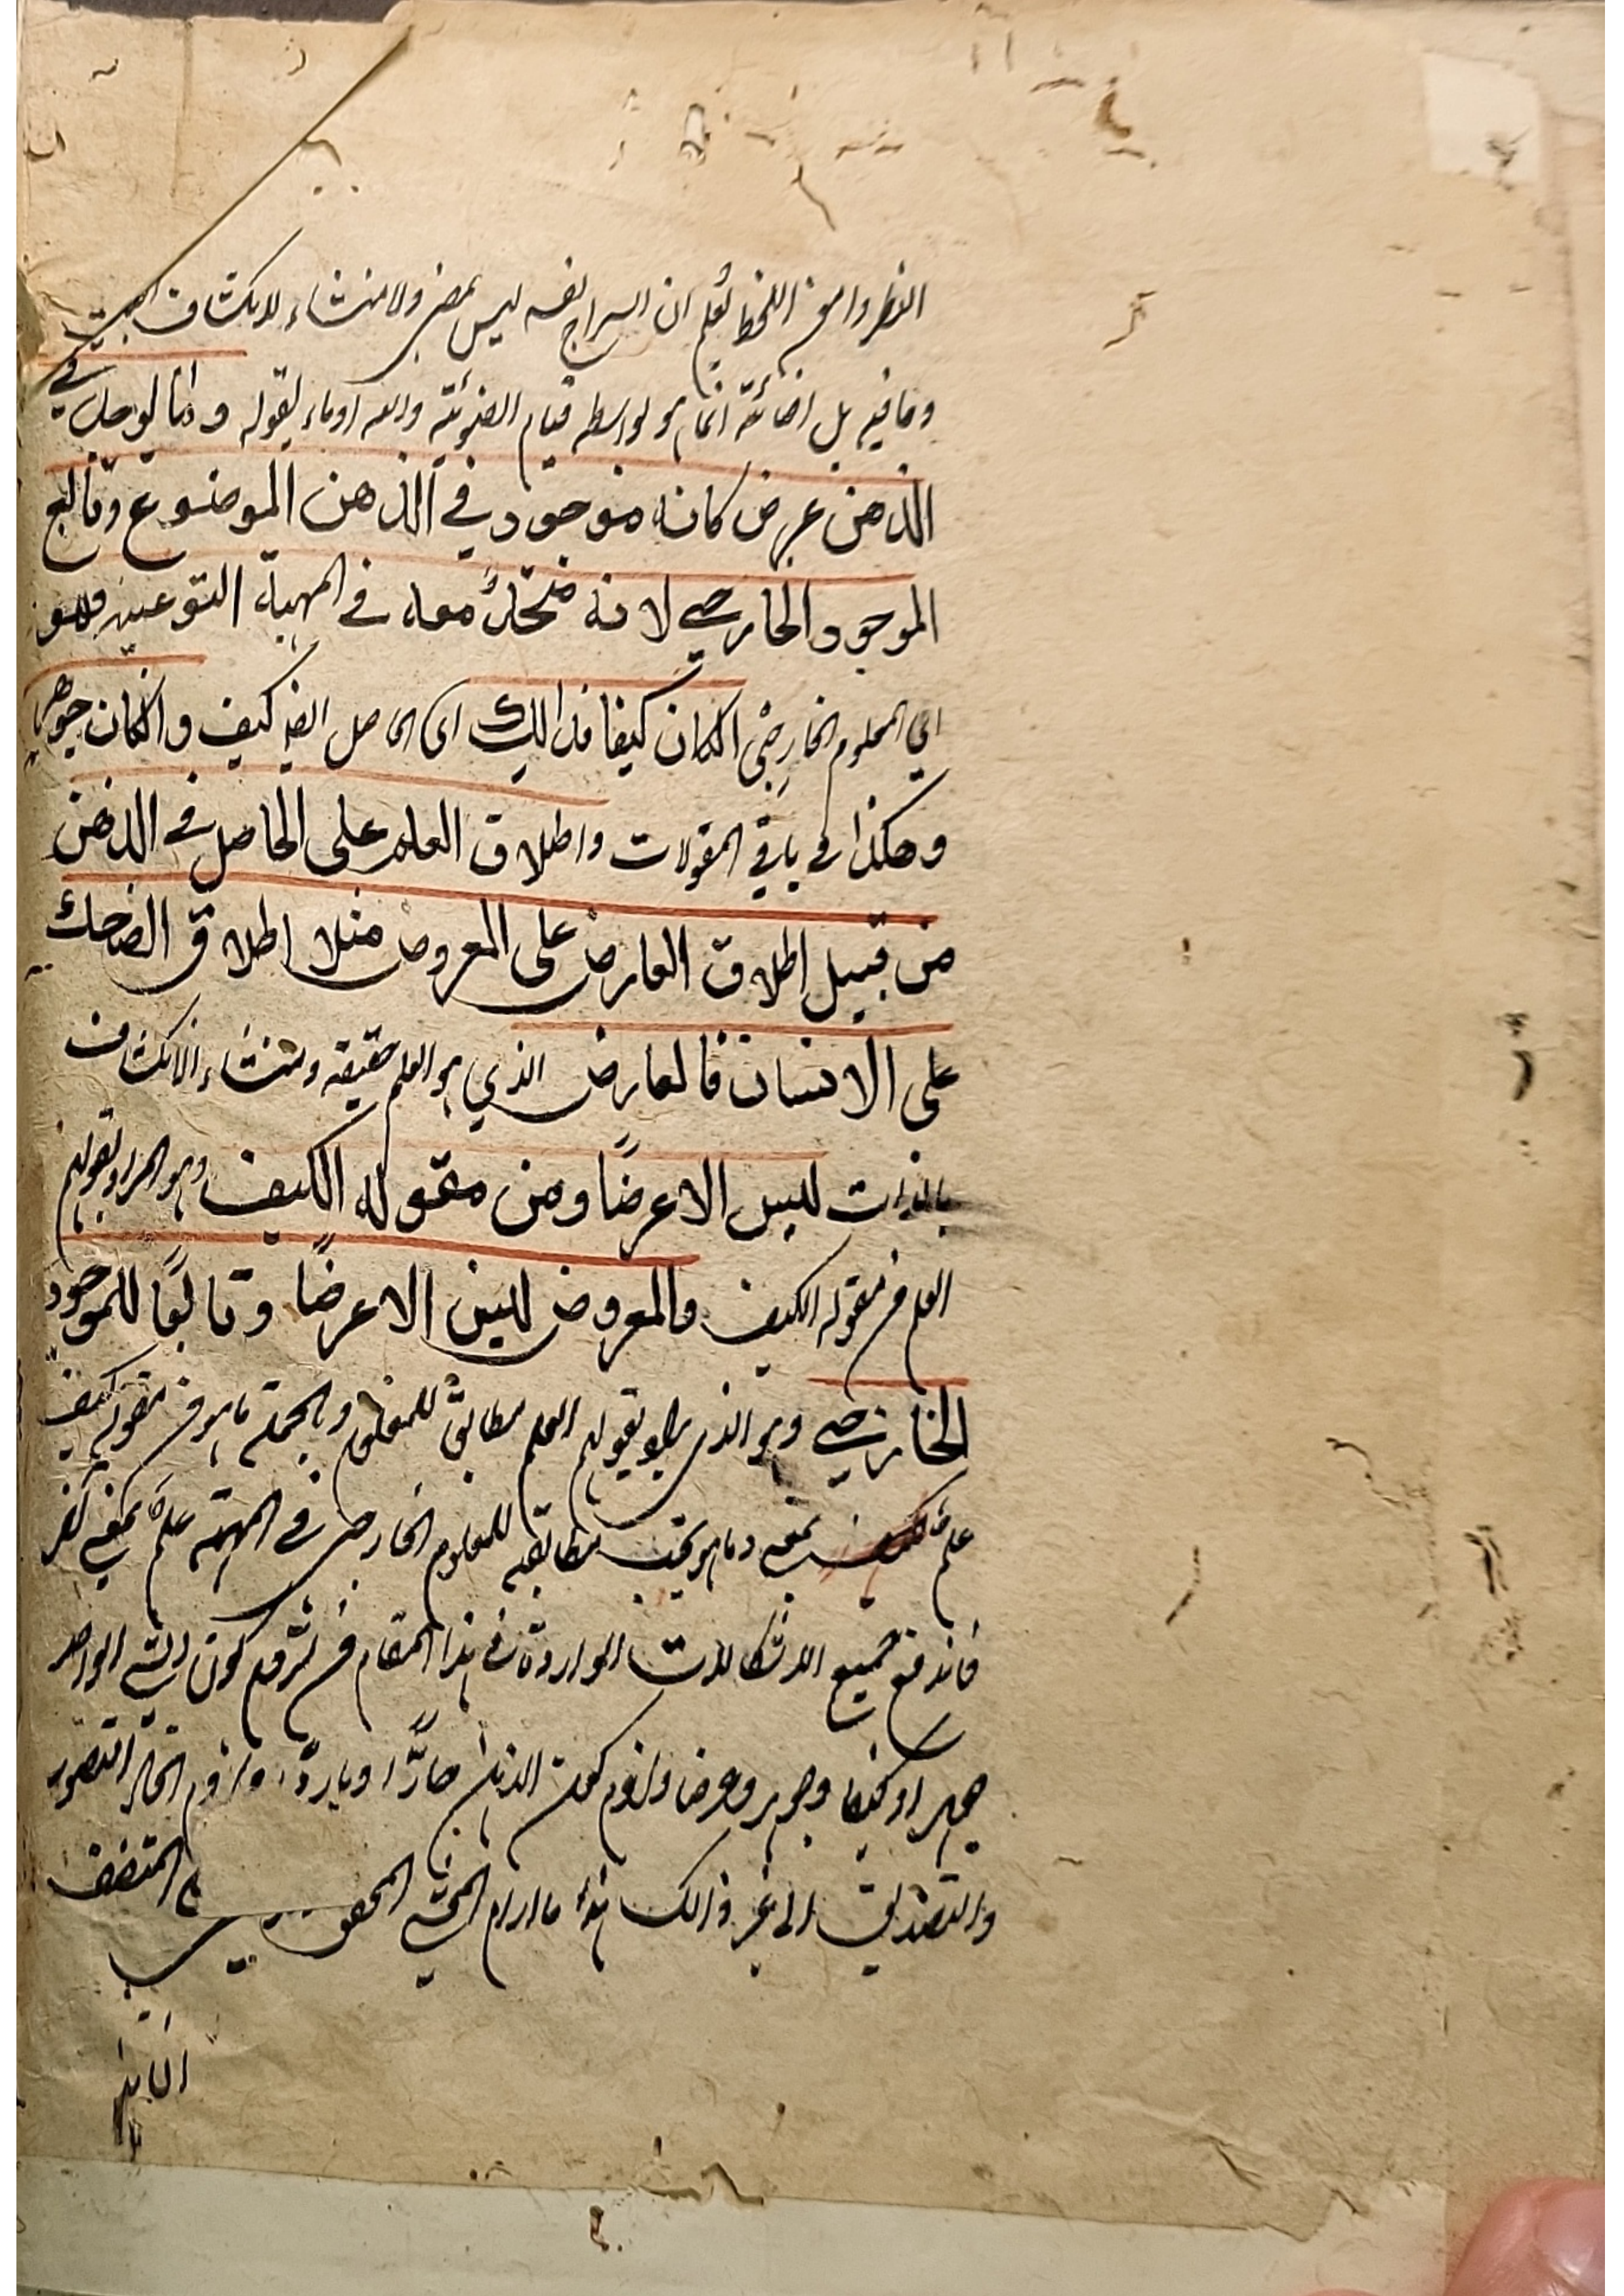 النظر وامعن اللحظ تعلم ان السراج نفسه ليس بمضئ ولا منشاء لانكشاف البيت
وما فيه بل اضائته انما هو بواسطة قيام الضوئية واليه اوماء بقوله وانما لوحل في
الذهن عرض كانه موجود في الذهن الموضوع وتابع
الموجود الخارجي لانه متحد معه في المهية النوعية وهو
اي المعلوم الخارجي ان كان كيفا فذالك اي الحاصل ايضا كيف وان كان جوهرا
وهكذا في باقي المقولات واطلاق العلم على الحاصل في الذهن
من قبيل اطلاق العارض على المعروض مثلا اطلاق الضاحك
على الانسان فالعارض الذي هو العلم حقيقة ومنشاء الانكشاف
بالذات ليس الا عرضًا ومن مقولة الكيف وهو المراد بقولهم
العلم من مقولة الكيف والمعروض ليس الا عرضًا وتابعًا للموجود
الخارجي وهو الذي يراد بقولهم العلم مطابق للمعلوم وبالجملة ما هو من مقولة كيف
علم بمعنى وما هو يجب مطابقته للمعلوم الخارجي في المهية علم بمعنى آخر
فاندفع جميع الاشكالات الواردة في هذا المقام من لزوم كون الشئ الواحد
جوهرا وكيفا وجوهر وعرضا ولزوم كون الذهن حارًّا وباردًا ولزوم اتحاد التصور
والتصديق الى غير ذالك هذا ما ارام المحشي المحقق